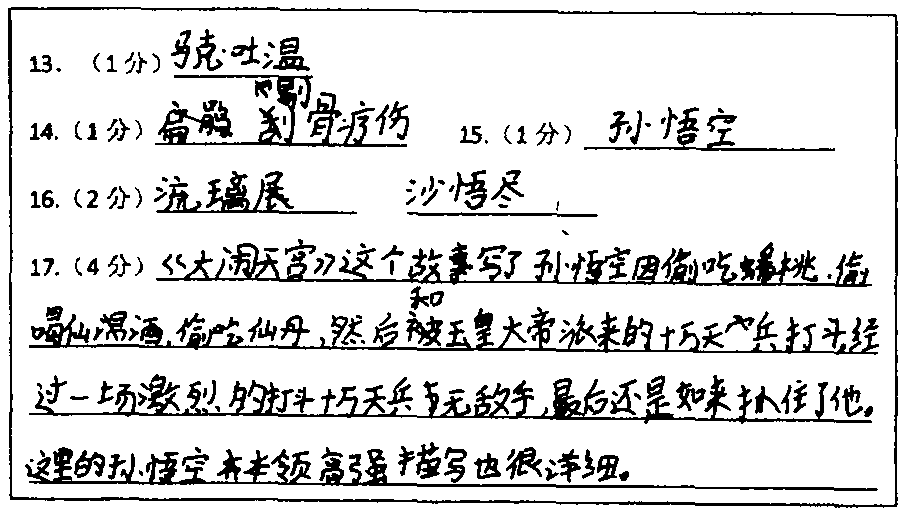 13. （1分）马克·吐温
14.（1分）扁鹊 刮骨疗伤 15.（1分） 孙悟空
16.（2分）流璃展 沙悟尽
17.（4分）《大闹天宫》这个故事写了孙悟空因偷吃蟠桃、偷
喝仙酒、偷吃仙丹，然后和被玉皇大帝派来的十万天兵打斗，经
过一场激烈的打斗十万天兵都无敌手，最后还是如来抓住了他。
这里的孙悟空本领高强描写也很详细。